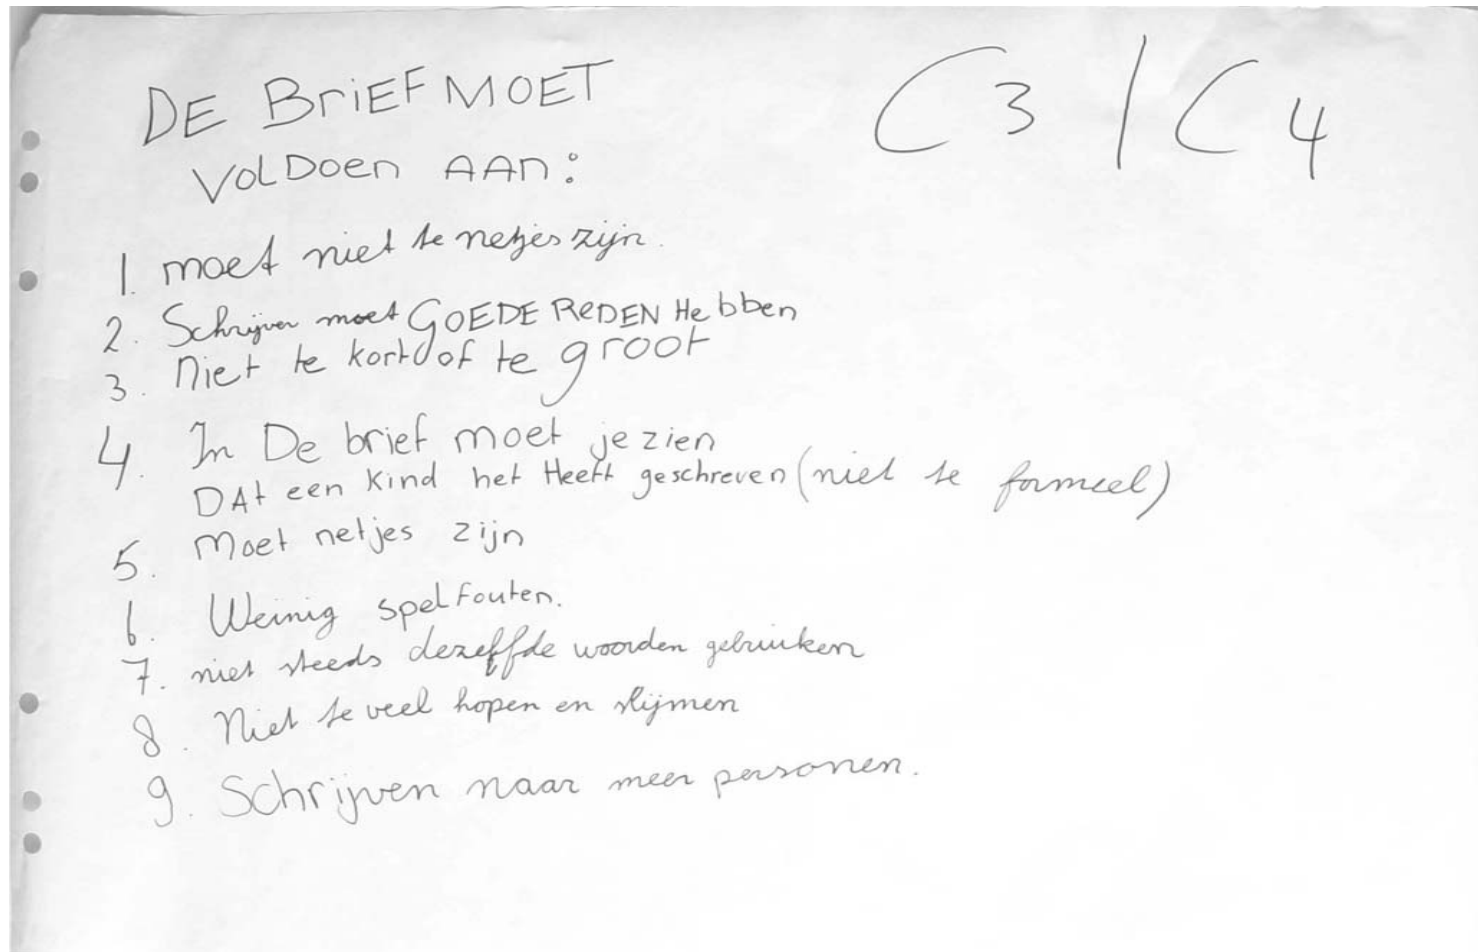 DE BriEF MOET
VOLDoen AAn:
C3 / C4
1. moet niet te netjes zijn.
2. Schrijver moet GOEDE REDEN Hebben
3. niet te kort of te groot
4. In De brief moet je zien
DAt een kind het Heeft geschreven (niet te formeel)
5. Moet netjes zijn
6. Weinig spelfouten.
7. niet steeds dezelfde woorden gebruiken
8. Niet te veel hopen en slijmen
9. Schrijven naar meer personen.